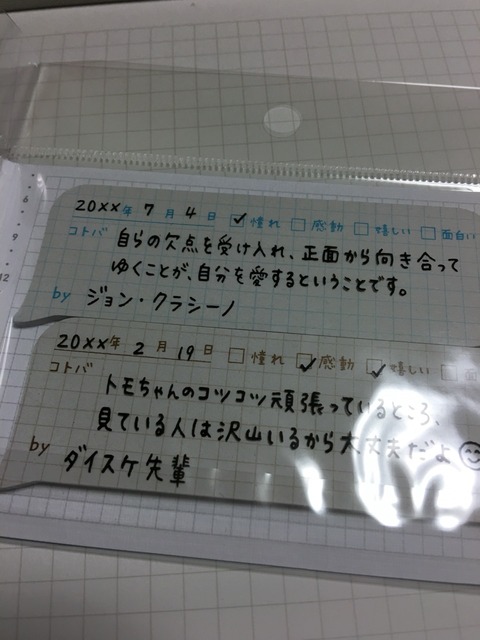 6
9
12
20××年 7月 4日 ✓憧れ □感動 □嬉しい □面白い
コトバ
自らの欠点を受け入れ、正面から向き合って
ゆくことが、自分を愛するということです。
by ジョン・クラシーノ
20××年 2月 19日 □憧れ ✓感動 ✓嬉しい □面
コトバ
トモちゃんのコツコツ頑張っているところ、
見ている人は沢山いるから大丈夫だよ
by ダイスケ先輩